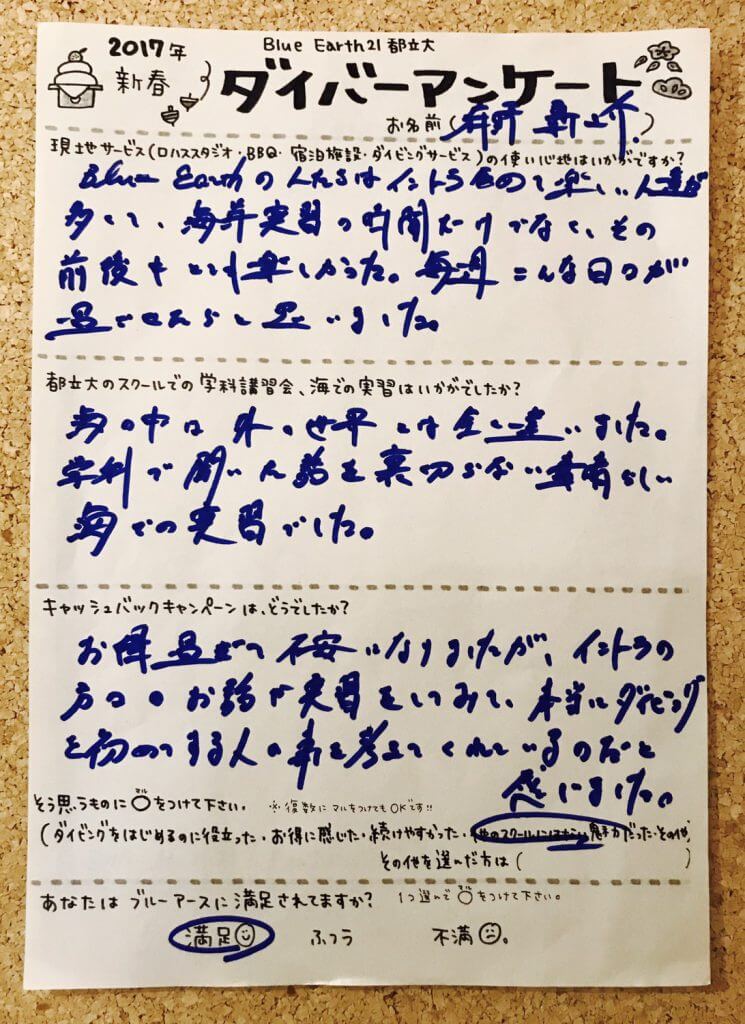 2017年
新春
Blue Earth21 都立大
ダイバーアンケート
お名前( )
現地サービス(ロハススタジオ・BBQ・宿泊施設・ダイビングサービス)の使い心地はいかがですか?
Blue Earthの人たちはイントラ含めて楽しい人達が
多くて、海洋実習の時間だけでなく、その
前後もとても楽しかった。毎週こんな日々が
過ごせたらと思いました。
都立大のスクールでの学科講習会、海での実習はいかがでしたか?
海の中は外の世界とは全く違いました。
学科で聞いた話を裏切らない素晴らしい
海での実習でした。
キャッシュバックキャンペーンは、どうでしたか?
お得過ぎて不安になりましたが、イントラの
方々のお話や実習をしてみて、本当にダイビング
を初めてする人の事を考えてくれているのだと
感じました。
そう思うものに○マルをつけて下さい。 ※複数にマルをつけてもOKです!!
(ダイビングをはじめるのに役立った・お得に感じた・続けやすかった・他のスクールにはない魅力だった・その他)
その他を選んだ方は( )
あなたはブルーアースに満足されてますか? 1つ選んで○をつけて下さい。
満足 ふつう 不満。